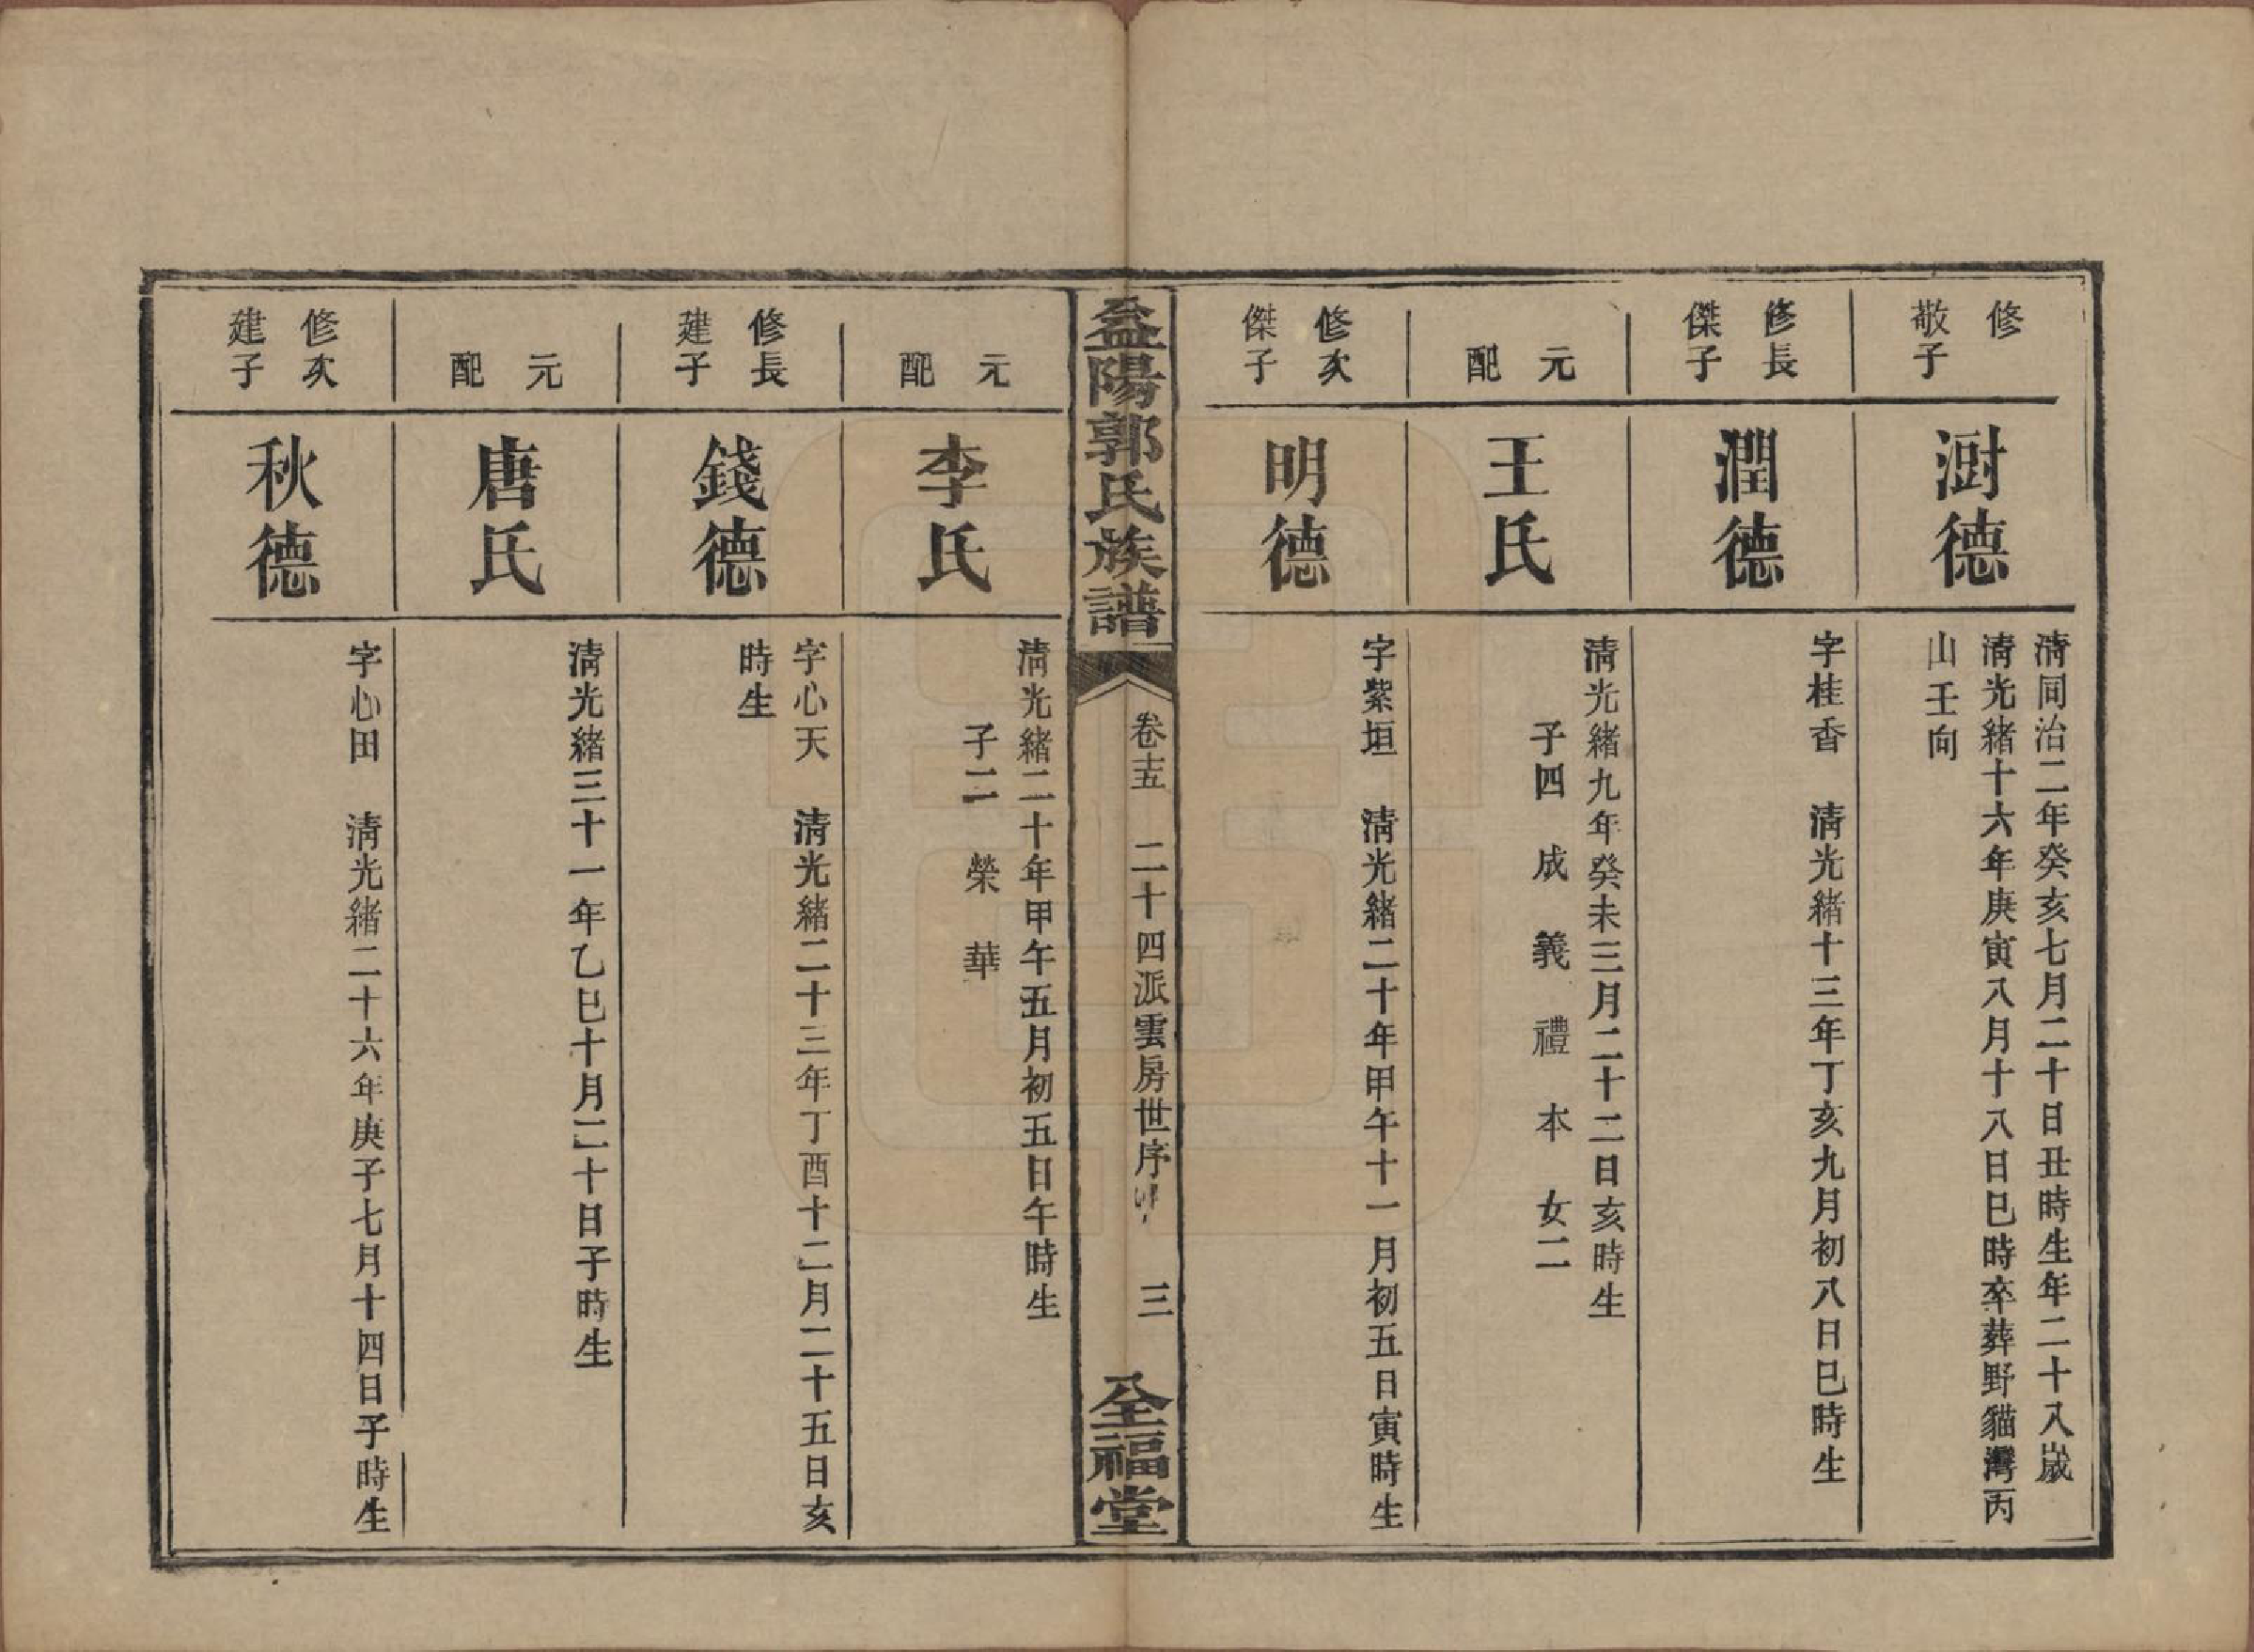 修
敬子
澍德
清同治二年癸亥七月二十日丑時生年二十八歲
清光緒十六年庚寅八月十八日巳時卒葬野貓灣丙
山壬向
修長
傑子
潤德
字桂香　清光緒十三年丁亥九月初八日巳時生
元
配
王氏
清光緒九年癸未三月二十二日亥時生
子四　成　義　禮　本　女二
修次
傑子
明德
字紫垣　清光緒二十年甲午十一月初五日寅時生
益陽郭氏族譜
卷十五　二十四派雲房世序　三
全福堂
元
配
李氏
清光緒二十年甲午五月初五日午時生
子二　榮　華
修長
建子
錢德
字心天　清光緒二十三年丁酉十二月二十五日亥
時生
元
配
唐氏
清光緒三十一年乙巳十月二十日子時生
修次
建子
秋德
字心田　清光緒二十六年庚子七月十四日子時生